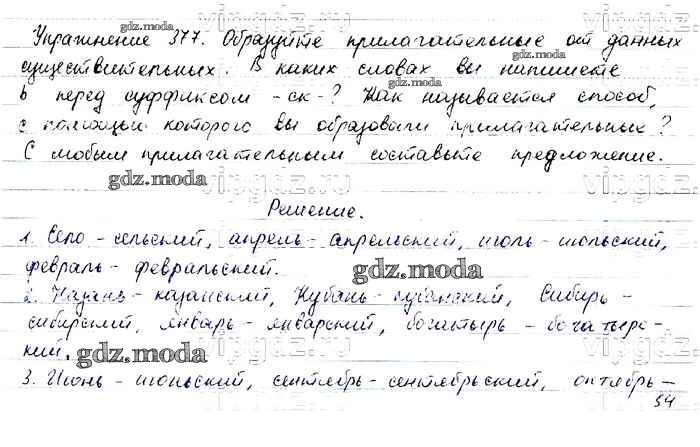 Упражнение 377. Образуйте прилагательные от данных
существительных. В каких словах вы напишете
ь перед суффиксом -ск-? Как называется способ,
с помощью которого вы образовали прилагательные?
С любым прилагательным составьте предложение.
Решение.
1. Село - сельский, апрель - апрельский, июль - июльский,
февраль - февральский.
2. Казань - казанский, Кубань - кубанский, Сибирь -
сибирский, январь - январский, богатырь - богатырс-
кий.
3. Июнь - июньский, сентябрь - сентябрьский, октябрь -
54
gdz.moda
gdz.moda
gdz.moda
gdz.moda
gdz.moda
gdz.moda
vipgdz.ru
vipgdz.ru
vipgdz.ru
vipgdz.ru